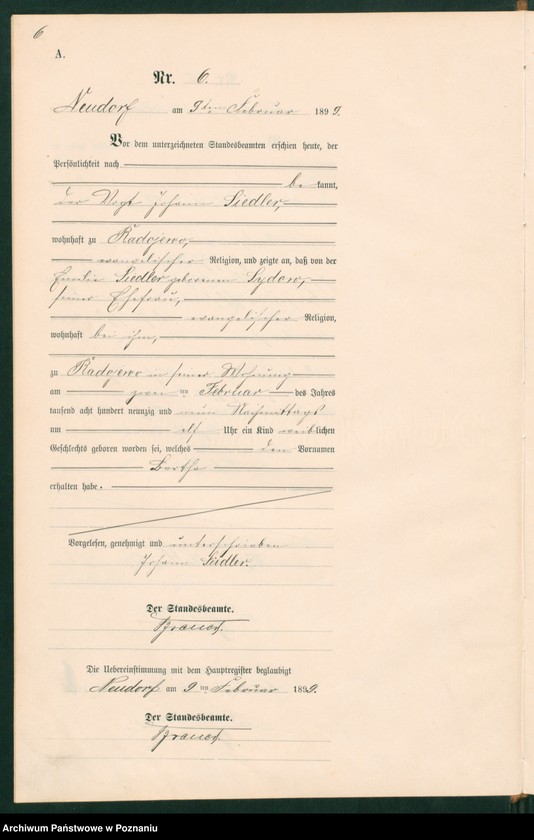 6
A.
Nr. 6.
Neudorf am 9ten Februar 1899.
Vor dem unterzeichneten Standesbeamten erschien heute, der
Persönlichkeit nach
be kannt,
der Vogt Johann Siedler,
wohnhaft zu Radojewo,
evangelischer Religion, und zeigte an, daß von der
Emilie Siedler geborenen Sydow,
seiner Ehefrau,
evangelischer Religion,
wohnhaft bei ihm,
zu Radojewo in seiner Wohnung
am zwei ten Februar des Jahres
tausend acht hundert neunzig und neun Nachmittags
um elf Uhr ein Kind weiblichen
Geschlechts geboren worden sei, welches den Vornamen
Bertha
erhalten habe.
Vorgelesen, genehmigt und unterschrieben
Johann Siedler.
Der Standesbeamte.
Die Uebereinstimmung mit dem Hauptregister beglaubigt
Neudorf am 9ten Februar 1899.
Der Standesbeamte.
Archiwum Państwowe w Poznaniu